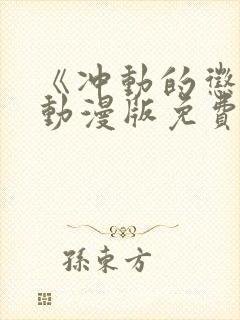 《冲動的懲
動漫版免費
孫東方